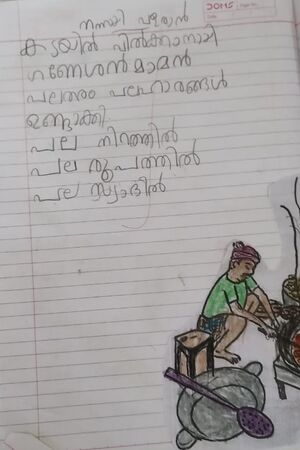 നന്നായി പഠിയ്ക്കാൻ
കടയിൽ വിൽക്കാനായി
ഗണേശൻ മാമൻ
പലതരം പലഹാരങ്ങൾ
ഉണ്ടാക്കി
പല നിറത്തിൽ
പല രൂപത്തിൽ
പല സ്വാദിൽ